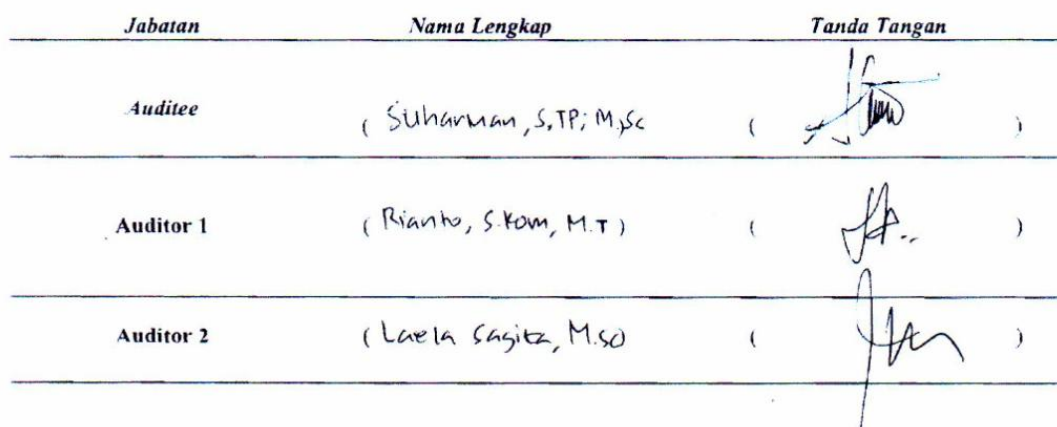 Jabatan Nama Lengkap Tanda Tangan
Auditee ( Suharman, S.TP; M.Sc ( )
Auditor 1 ( Rianto, S.Kom, M.T ) ( )
Auditor 2 ( Laela Sagita, M.Sc) ( )